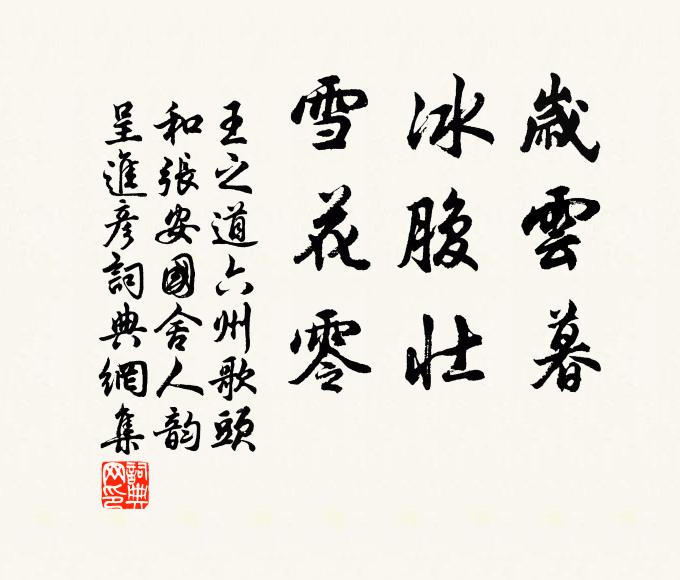 歲雲暮
冰腹壯
雪花零
王之道六州歌頭
和張安國舍人韵
呈進彥詞典網集
詞典网印